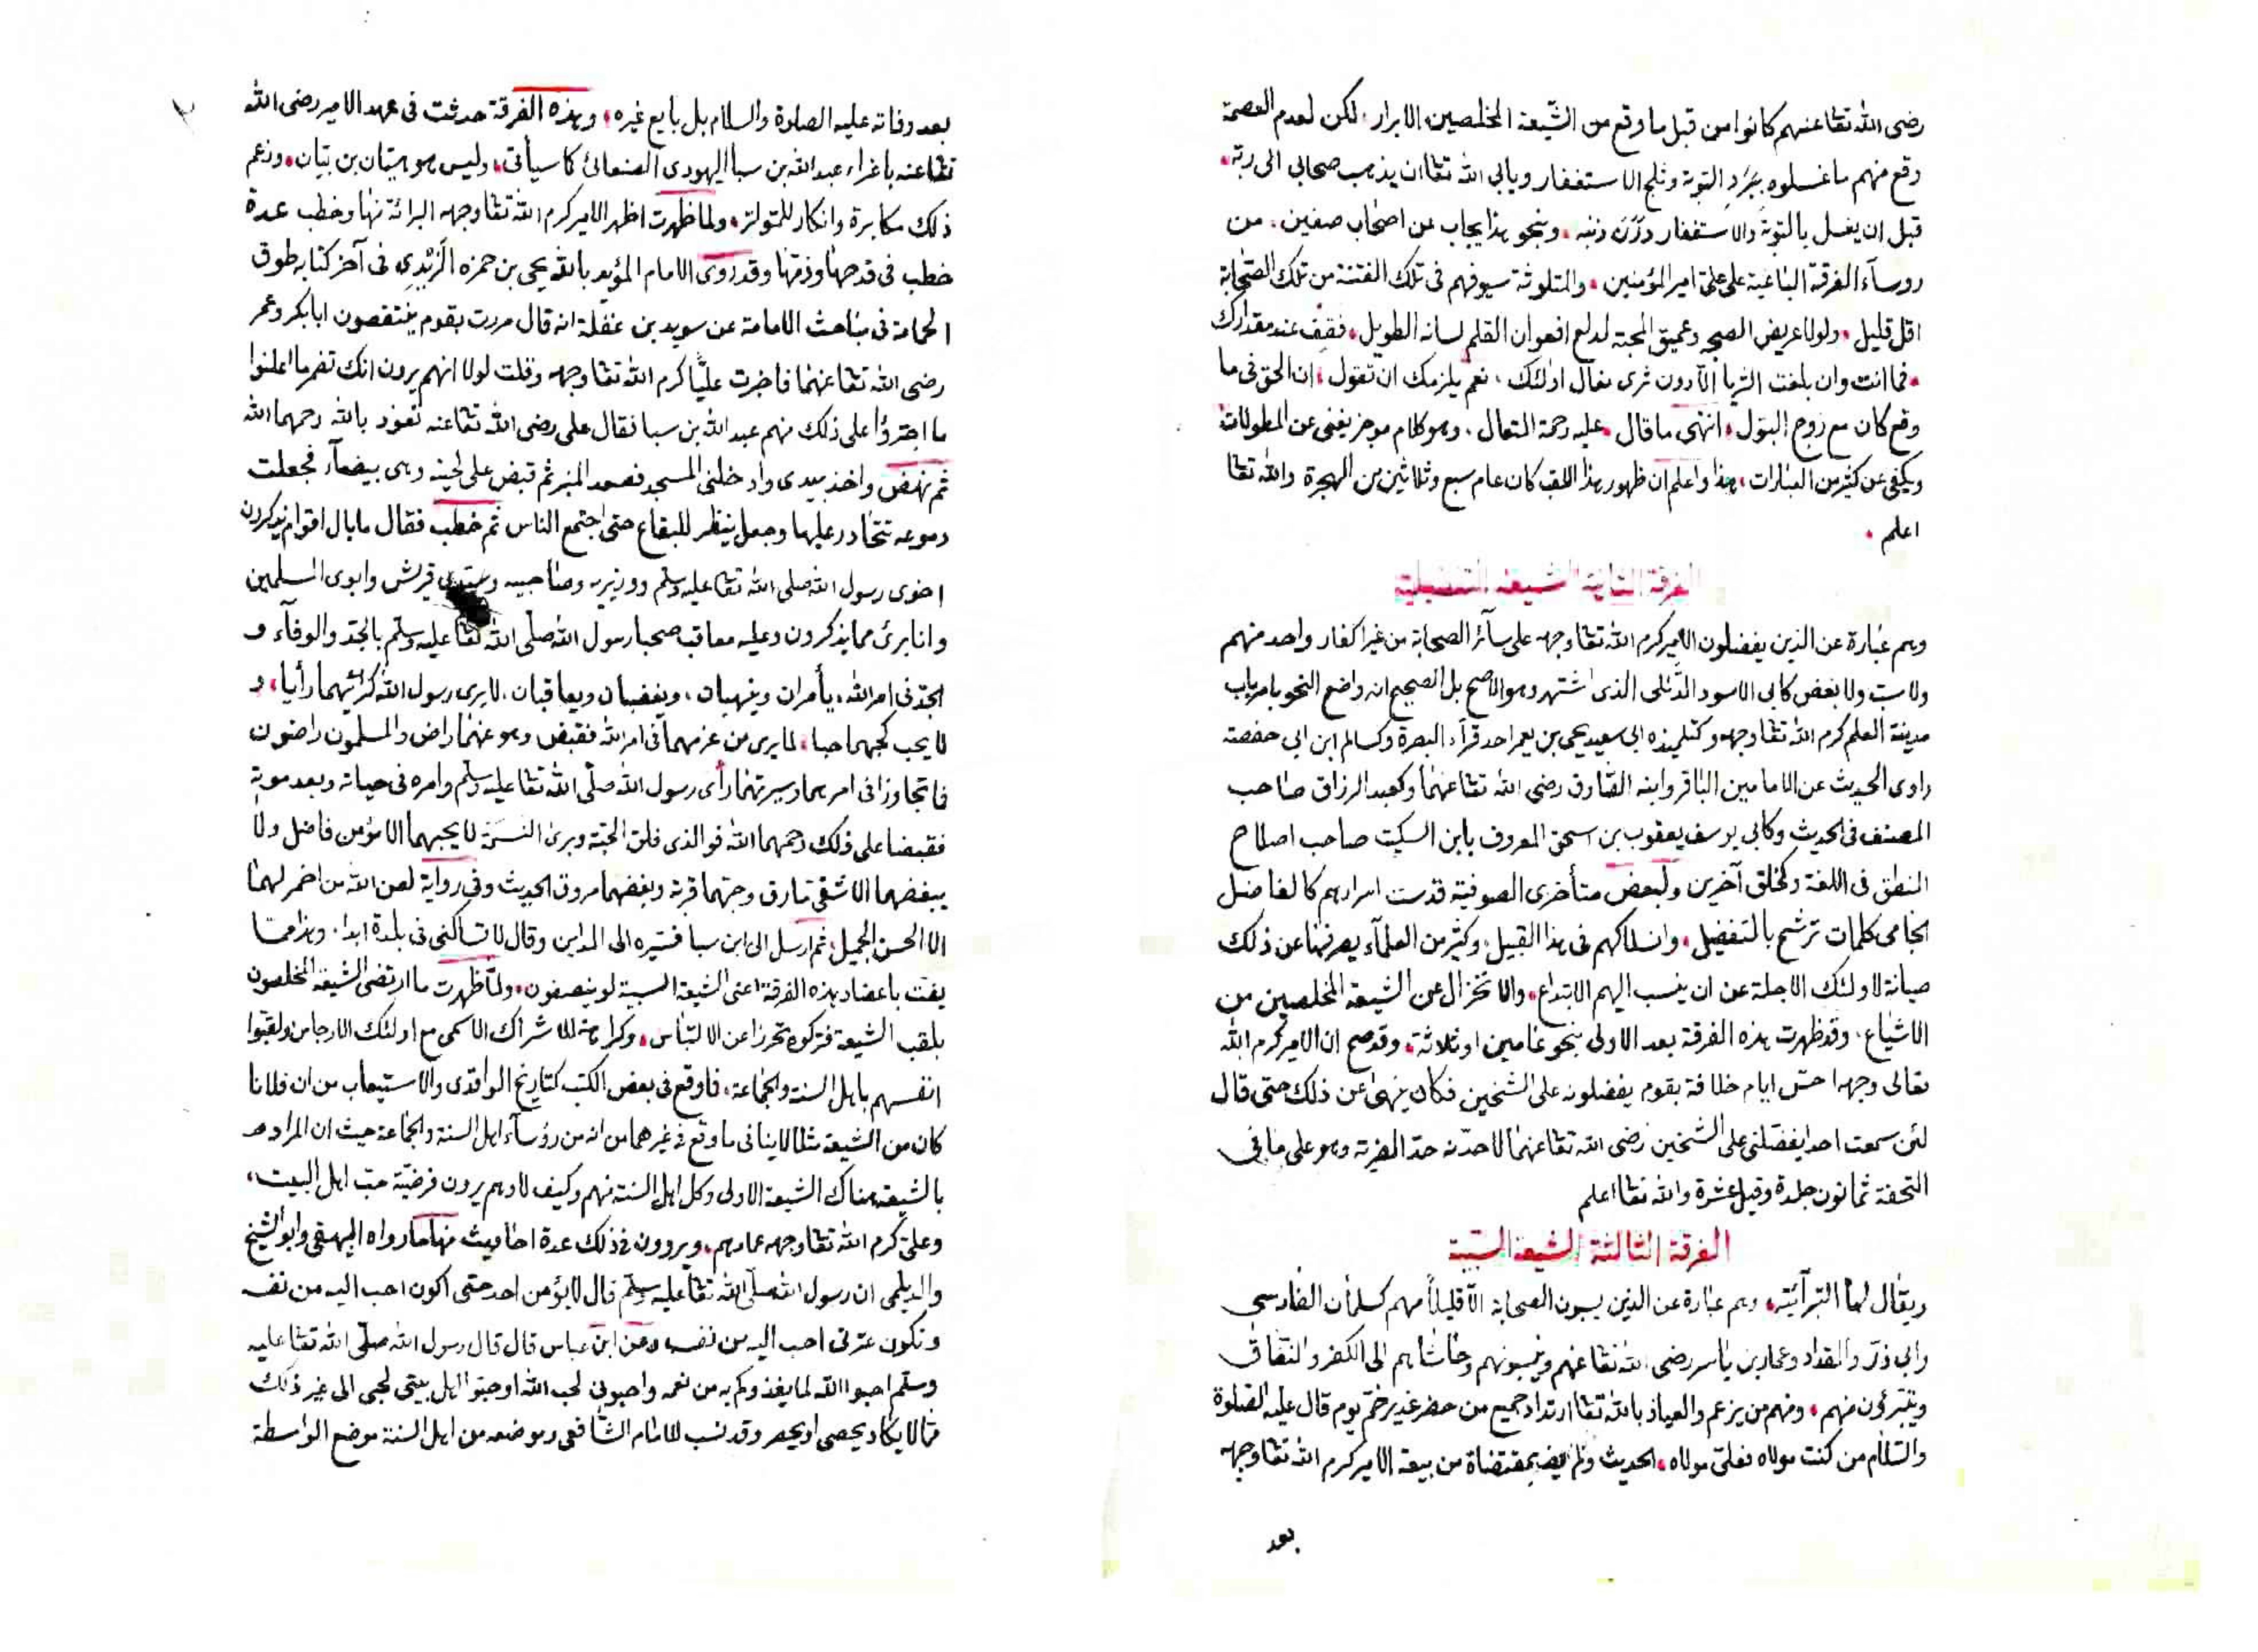 رضى الله تعا عنهم كانوا من قبل ما وقع من الشيعة المخلصين الابرار لكن لعدم العصمة
وقع منهم ما غسلوه ببرد التوبة وثلج الاستغفار ويابى الله تعا ان يذهب صحابي الى ربه
قبل ان يغسل بالتوبة والاستغفار درن ذنبه وبنحو هذا يجاب عن اصحاب صفين من
روسآء الفرقة الباغية على على امير المؤمنين والمتلوثة سيوفهم فى تلك الفتنة من تلك الصحابة
اقل قليل ولولا عريض الصحبة وعميق المحبة لدلع افعوان القلم لسانه الطويل فقف عند مقدارك
فما انت وان بلغت الثريا الا دون ثرى نعال اولئك نعم يلزمك ان تقول ان الحق فى ما
وقع كان مع زوج البتول انتهى ما قال عليه رحمة المتعال وهو كلام موجز يغنى عن المطولات
ويكفى عن كثير من العبارات هذا واعلم ان ظهور هذا اللقب كان عام سبع وثلاثين من الهجرة والله تعا
اعلم
الفرقة الثانية الشيعة التفضيلية
وهم عبارة عن الذين يفضلون الامير كرم الله تعا وجهه على سآئر الصحابة من غير اكفار واحد منهم
ولا سب ولا بغض كابى الاسود الدئلى الذى اشتهر وهو الاصح بل الصحيح انه واضع النحو بامر باب
مدينة العلم كرم الله تعا وجهه وكتلميذه ابى سعيد يحى بن يعمر احد قرآء البصرة وكسالم ابن ابى حفصة
راوى الحديث عن الامامين الباقر وابنه الصادق رضى الله تعا عنهما وكعبد الرزاق صاحب
المصنف فى الحديث وكابى يوسف يعقوب بن اسحق المعروف بابن السكيت صاحب اصلاح
المنطق فى اللغة وكخلق آخرين ولبعض متأخرى الصوفية قدست اسرارهم كالفاضل
الجامى كلمات ترشح بالتفضيل وانسلاكهم فى هذا القبيل وكثير من العلمآء يصرفها عن ذلك
صيانة لاولئك الاجلة عن ان ينسب اليهم الابتداع والانخزال عن الشيعة المخلصين من
الاشياع وقد ظهرت هذه الفرقة بعد الاولى بنحو عامين او ثلاثة وقد صح ان الامير كرم الله
تعالى وجهه احس ايام خلافة بقوم يفضلونه على الشيخين فكان ينهى عن ذلك حتى قال
لئن سمعت احدا يفضلنى على الشيخين رضى الله تعا عنهما لاحدنه حد الفرية وهو على ما فى
التحفة ثمانون جلدة وقيل عشرة والله تعا اعلم
الفرقة الثالثة الشيعة السبية
ويقال لها التبرآئية وهم عبارة عن الذين يسبون الصحابة الا قليلا منهم كسلمان الفارسى
وابى ذر والمقداد وعمار بن ياسر رضى الله تعا عنهم وينسبونهم وحاشاهم الى الكفر والنفاق
ويتبرئون منهم ومنهم من يزعم والعياذ بالله تعا ارتداد جميع من حضر غدير خم يوم قال عليه الصلوة
والسلام من كنت مولاه فعلى مولاه الحديث ولم يف بمقتضاه من بيعة الامير كرم الله تعا وجهه
بعد
بعد وفاته عليه الصلوة والسلام بل بايع غيره وهذه الفرقة حدثت فى عهد الامير رضى الله
تعا عنه باغراء عبد الله بن سبا اليهودى الصنعانى كما سيأتى وليس هو هيان بن بيان وزعم
ذلك مكابرة وانكار للمتواتر ولما ظهرت اظهر الامير كرم الله تعا وجهه البرائة منها وخطب عدة
خطب فى قدحها وذمها وقد روى الامام المؤيد بالله يحى بن حمزه الزيدى فى آخر كتابه طوق
الحمامة فى مباحث الامامة عن سويد بن غفلة انه قال مررت بقوم ينتقصون ابا بكر وعمر
رضى الله تعا عنهما فاخبرت عليا كرم الله تعا وجهه وقلت لولا انهم يرون انك تضمر ما اعلنوا
ما اجترؤا على ذلك منهم عبد الله بن سبا فقال على رضى الله تعا عنه نعوذ بالله رحمهما الله
ثم نهض واخذ بيدى وادخلنى المسجد فصعد المنبر ثم قبض على لحيته وهى بيضآء فجعلت
دموعه تتحادر عليها وجعل ينظر للبقاع حتى اجتمع الناس ثم خطب فقال ما بال اقوام يذكرون
اخوى رسول الله صلى الله تعا عليه وسلم ووزيريه وصاحبيه وسيدى قريش وابوى المسلمين
وانا برئ مما يذكرون وعليه معاقب صحبا رسول الله صلى الله تعا عليه وسلم بالجد والوفآء و
الجد فى امر الله يأمران وينهيان ويغضبان ويعاقبان لا يرى رسول الله كرأيهما رأيا و
لا يحب كحبهما حبا لما يرى من عزمهما فى امر الله فقبض وهو عنهما راض والمسلمون راضون
فما تجاوزا فى امرهما وسيرتهما رأى رسول الله صلى الله تعا عليه وسلم وامره فى حياته وبعد موته
فقبضا على ذلك رحمهما الله فوالذى فلق الحبة وبرئ النسمة لا يحبهما الا مؤمن فاضل ولا
يبغضهما الا شقى مارق وحبهما قربة وبغضهما مروق الحديث وفى رواية لعن الله من اضمر لهما
الا الحسن الجميل ثم ارسل الى ابن سبا فسيره الى المداين وقال لا تساكننى فى بلدة ابدا وهذا مما
يفت باعضاد هذه الفرقة اعنى الشيعة السبية لو ينصفون ولما ظهرت ما ارتضى الشيعة المخلصون
بلقب الشيعة فتركوه تحرزا عن الالتباس وكراهة للاشراك الاسمى مع اولئك الارجاس ولقبوا
انفسهم باهل السنة والجماعة فما وقع فى بعض الكتب كتاريخ الواقدى والاستيعاب من ان فلانا
كان من الشيعة مثلا لا ينافى ما وقع فى غيرهما من انه من رؤسآء اهل السنة والجماعة حيث ان المراد
بالشيعة هناك الشيعة الاولى وكل اهل السنة منهم وكيف لا وهم يرون فرضية حب اهل البيت
وعلى كرم الله تعا وجهه عمادهم ويروون فى ذلك عدة احاديث منها ما رواه البيهقى وابو الشيخ
والديلمى ان رسول الله صلى الله تعا عليه وسلم قال لا يؤمن احد حتى اكون احب اليه من نفسه
وتكون عترتى احب اليه من نفسه وعن ابن عباس قال قال رسول الله صلى الله تعا عليه
وسلم احبوا الله لما يغذوكم به من نعمه واحبونى لحب الله واحبوا اهل بيتى لحبى الى غير ذلك
مما لا يكاد يحصى او يحصر وقد نسب للامام الشافعى وموضعه من اهل السنة موضع الواسطة